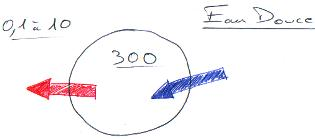 0,1 à 10
Eau Douce
300